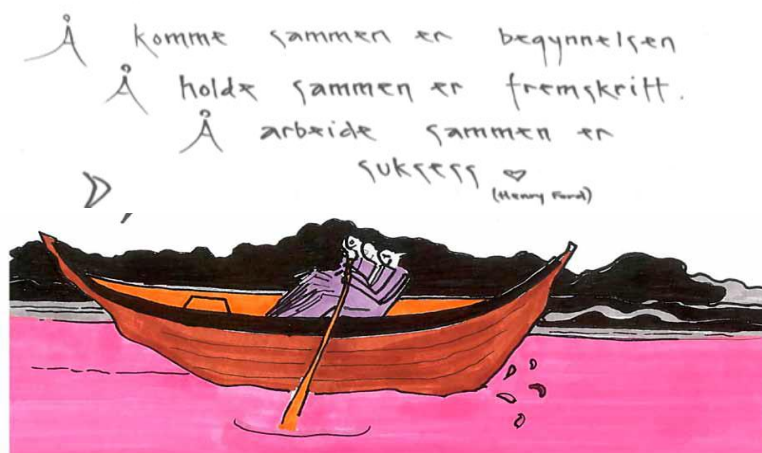 Å komme sammen er begynnelsen
Å holde sammen er fremskritt.
Å arbeide sammen er
suksess
(Henry Ford)